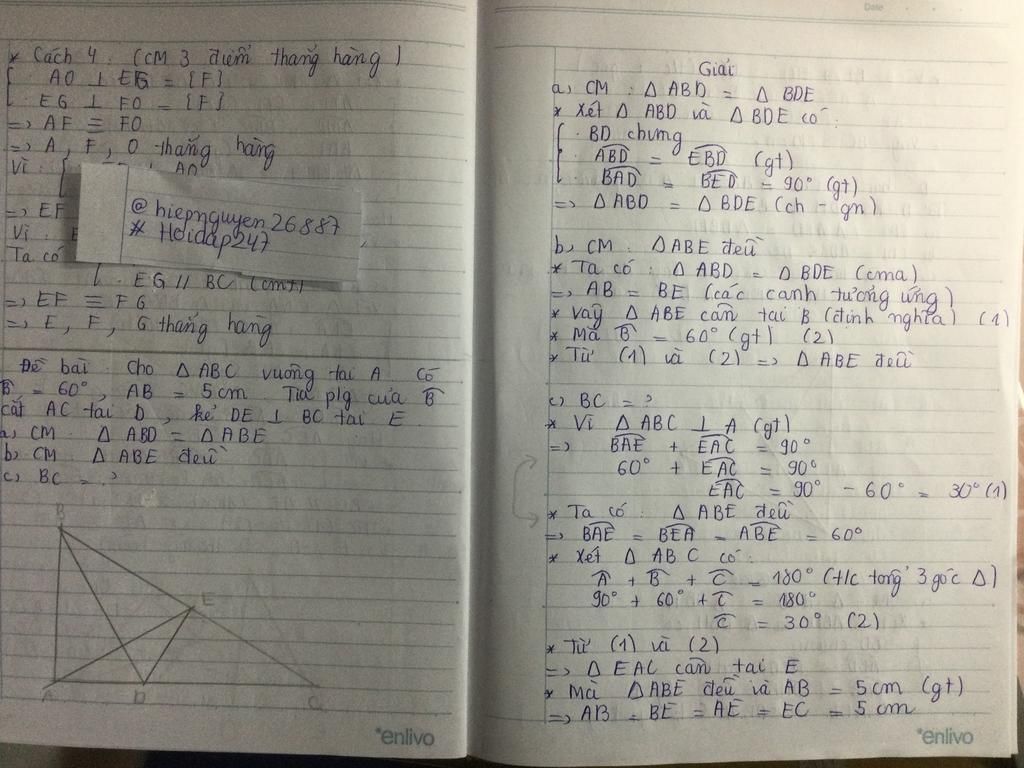 * Cách 4 : (CM 3 điểm thẳng hàng)
AO ⊥ EG = {F}
EG ⊥ FO = {F}
=> AF ≡ FO
=> A, F, O thẳng hàng
Vì : AO
=> EF
@hiepnguyen26887
# Hoidap247
Vì : E
Ta có
EG // BC (cmt)
=> EF ≡ FG
=> E, F, G thẳng hàng
Đề bài : Cho Δ ABC vuông tại A có
B̂ = 60°, AB = 5cm. Tia p/g của B̂
cắt AC tại D, kẻ DE ⊥ BC tại E
a, CM : Δ ABD = Δ ABE
b, CM : Δ ABE đều
c, BC = ?
B
E
A
D
C
*enlivo
Date
Giải
a, CM : Δ ABD = Δ BDE
* Xét Δ ABD và Δ BDE có :
BD chung
ABD = EBD (gt)
BAD = BED = 90° (gt)
=> Δ ABD = Δ BDE (ch - gn)
b, CM : Δ ABE đều
* Ta có : Δ ABD = Δ BDE (cma)
=> AB = BE (các cạnh tương ứng)
* Vậy Δ ABE cân tại B (định nghĩa) (1)
* Mà B̂ = 60° (gt) (2)
* Từ (1) và (2) => Δ ABE đều
c, BC = ?
* Vì Δ ABC ⊥ A (gt)
=> BAE + EAC = 90°
60° + EAC = 90°
EAC = 90° - 60° = 30° (1)
* Ta có : Δ ABE đều
=> BAE = BEA = ABE = 60°
* Xét Δ ABC có :
Â + B̂ + Ĉ = 180° (t/c tổng 3 góc Δ)
90° + 60° + Ĉ = 180°
Ĉ = 30° (2)
* Từ (1) và (2)
=> Δ EAC cân tại E
* Mà Δ ABE đều và AB = 5cm (gt)
=> AB = BE = AE = EC = 5cm
*enlivo